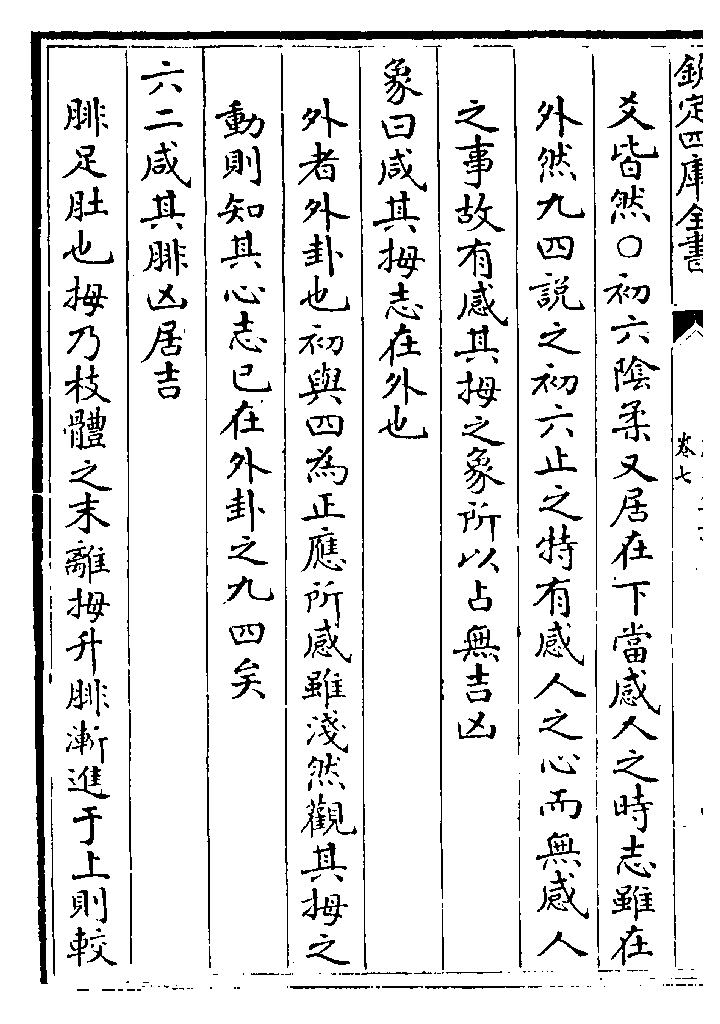 欽定四庫全書
卷七
爻皆然○初六陰柔又居在下當感人之時志雖在
外然九四説之初六止之特有感人之心而無感人
之事故有感其拇之象所以占無吉凶
象曰咸其拇志在外也
外者外卦也初與四為正應所感雖淺然觀其拇之
動則知其心志已在外卦之九四矣
六二咸其腓凶居吉
腓足肚也拇乃枝體之末離拇升腓漸進于上則較